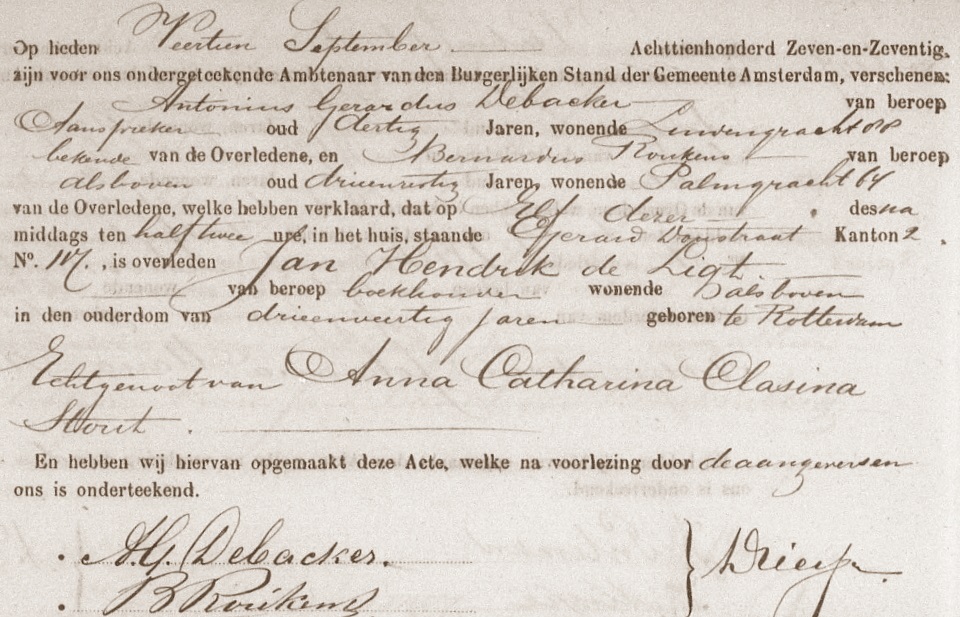 Op heden Veertien September Achttienhonderd Zeven-en-Zeventig,
zijn voor ons ondergeteekende Ambtenaar van den Burgerlijken Stand der Gemeente Amsterdam, verschenen:
Antonius Gerardus Debacker van beroep
Aanspreker oud dertig Jaren, wonende
bekende van de Overledene, en Bernardus Roukens van beroep
alsboven oud drieenveertig Jaren, wonende Palmgracht 64
van de Overledene, welke hebben verklaard, dat op Elf dezer des na
middags ten half twee ure, in het huis, staande Gerard Doustraat Kanton 2
No. 117, is overleden Jan Hendrik de Ligt
van beroep boekhouder wonende alsboven
in den ouderdom van drieenveertig jaren geboren te Rotterdam
Echtgenoot van Anna Catharina Clasina
Stout.
En hebben wij hiervan opgemaakt deze Acte, welke na voorlezing door de aangevers en
ons is onderteekend.
A.G. Debacker.
B Roukens